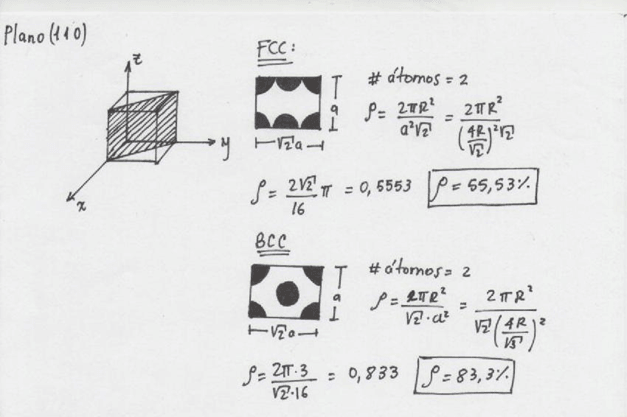 Plano (110)
z
y
x
FCC:
a
√2a
# átomos = 2
ρ = 2πR² / a²√2 = 2πR² / (4R/√2)²√2
ρ = 2√2/16 π = 0,5553 ρ = 55,53%
BCC
a
√2a
# átomos = 2
ρ = 2πR² / √2·a² = 2πR² / √2(4R/√3)²
ρ = 2π·3 / √2·16 = 0,833 ρ = 83,3%